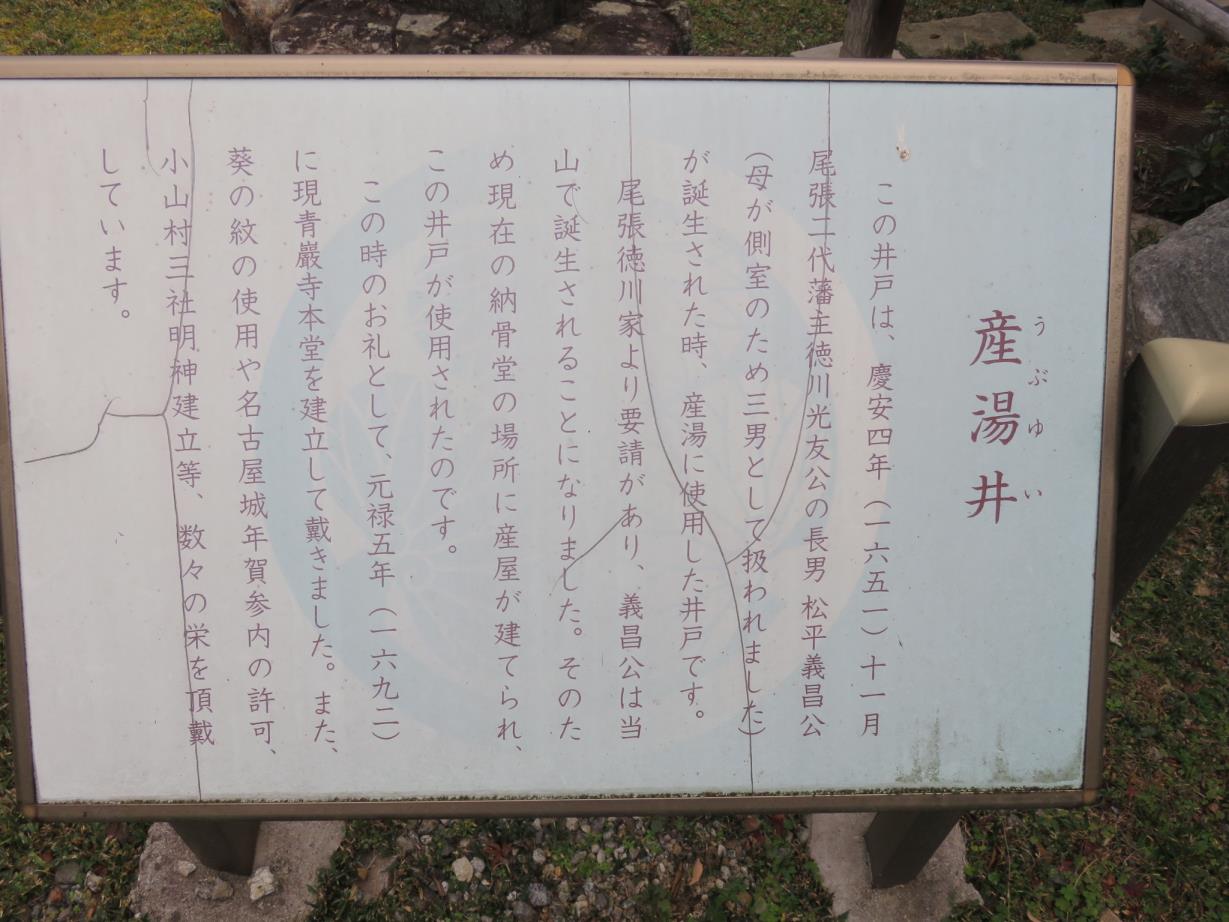 産湯井
うぶゆい
この井戸は、慶安四年(一六五一)十一月
尾張二代藩主徳川光友公の長男 松平義昌公
(母が側室のため三男として扱われました)
が誕生された時、産湯に使用した井戸です。
尾張徳川家より要請があり、義昌公は当
山で誕生されることになりました。そのた
め現在の納骨堂の場所に産屋が建てられ、
この井戸が使用されたのです。
この時のお礼として、元禄五年(一六九二)
に現青巖寺本堂を建立して戴きました。また、
葵の紋の使用や名古屋城年賀参内の許可、
小山村三社明神建立等、数々の栄を頂戴
しています。